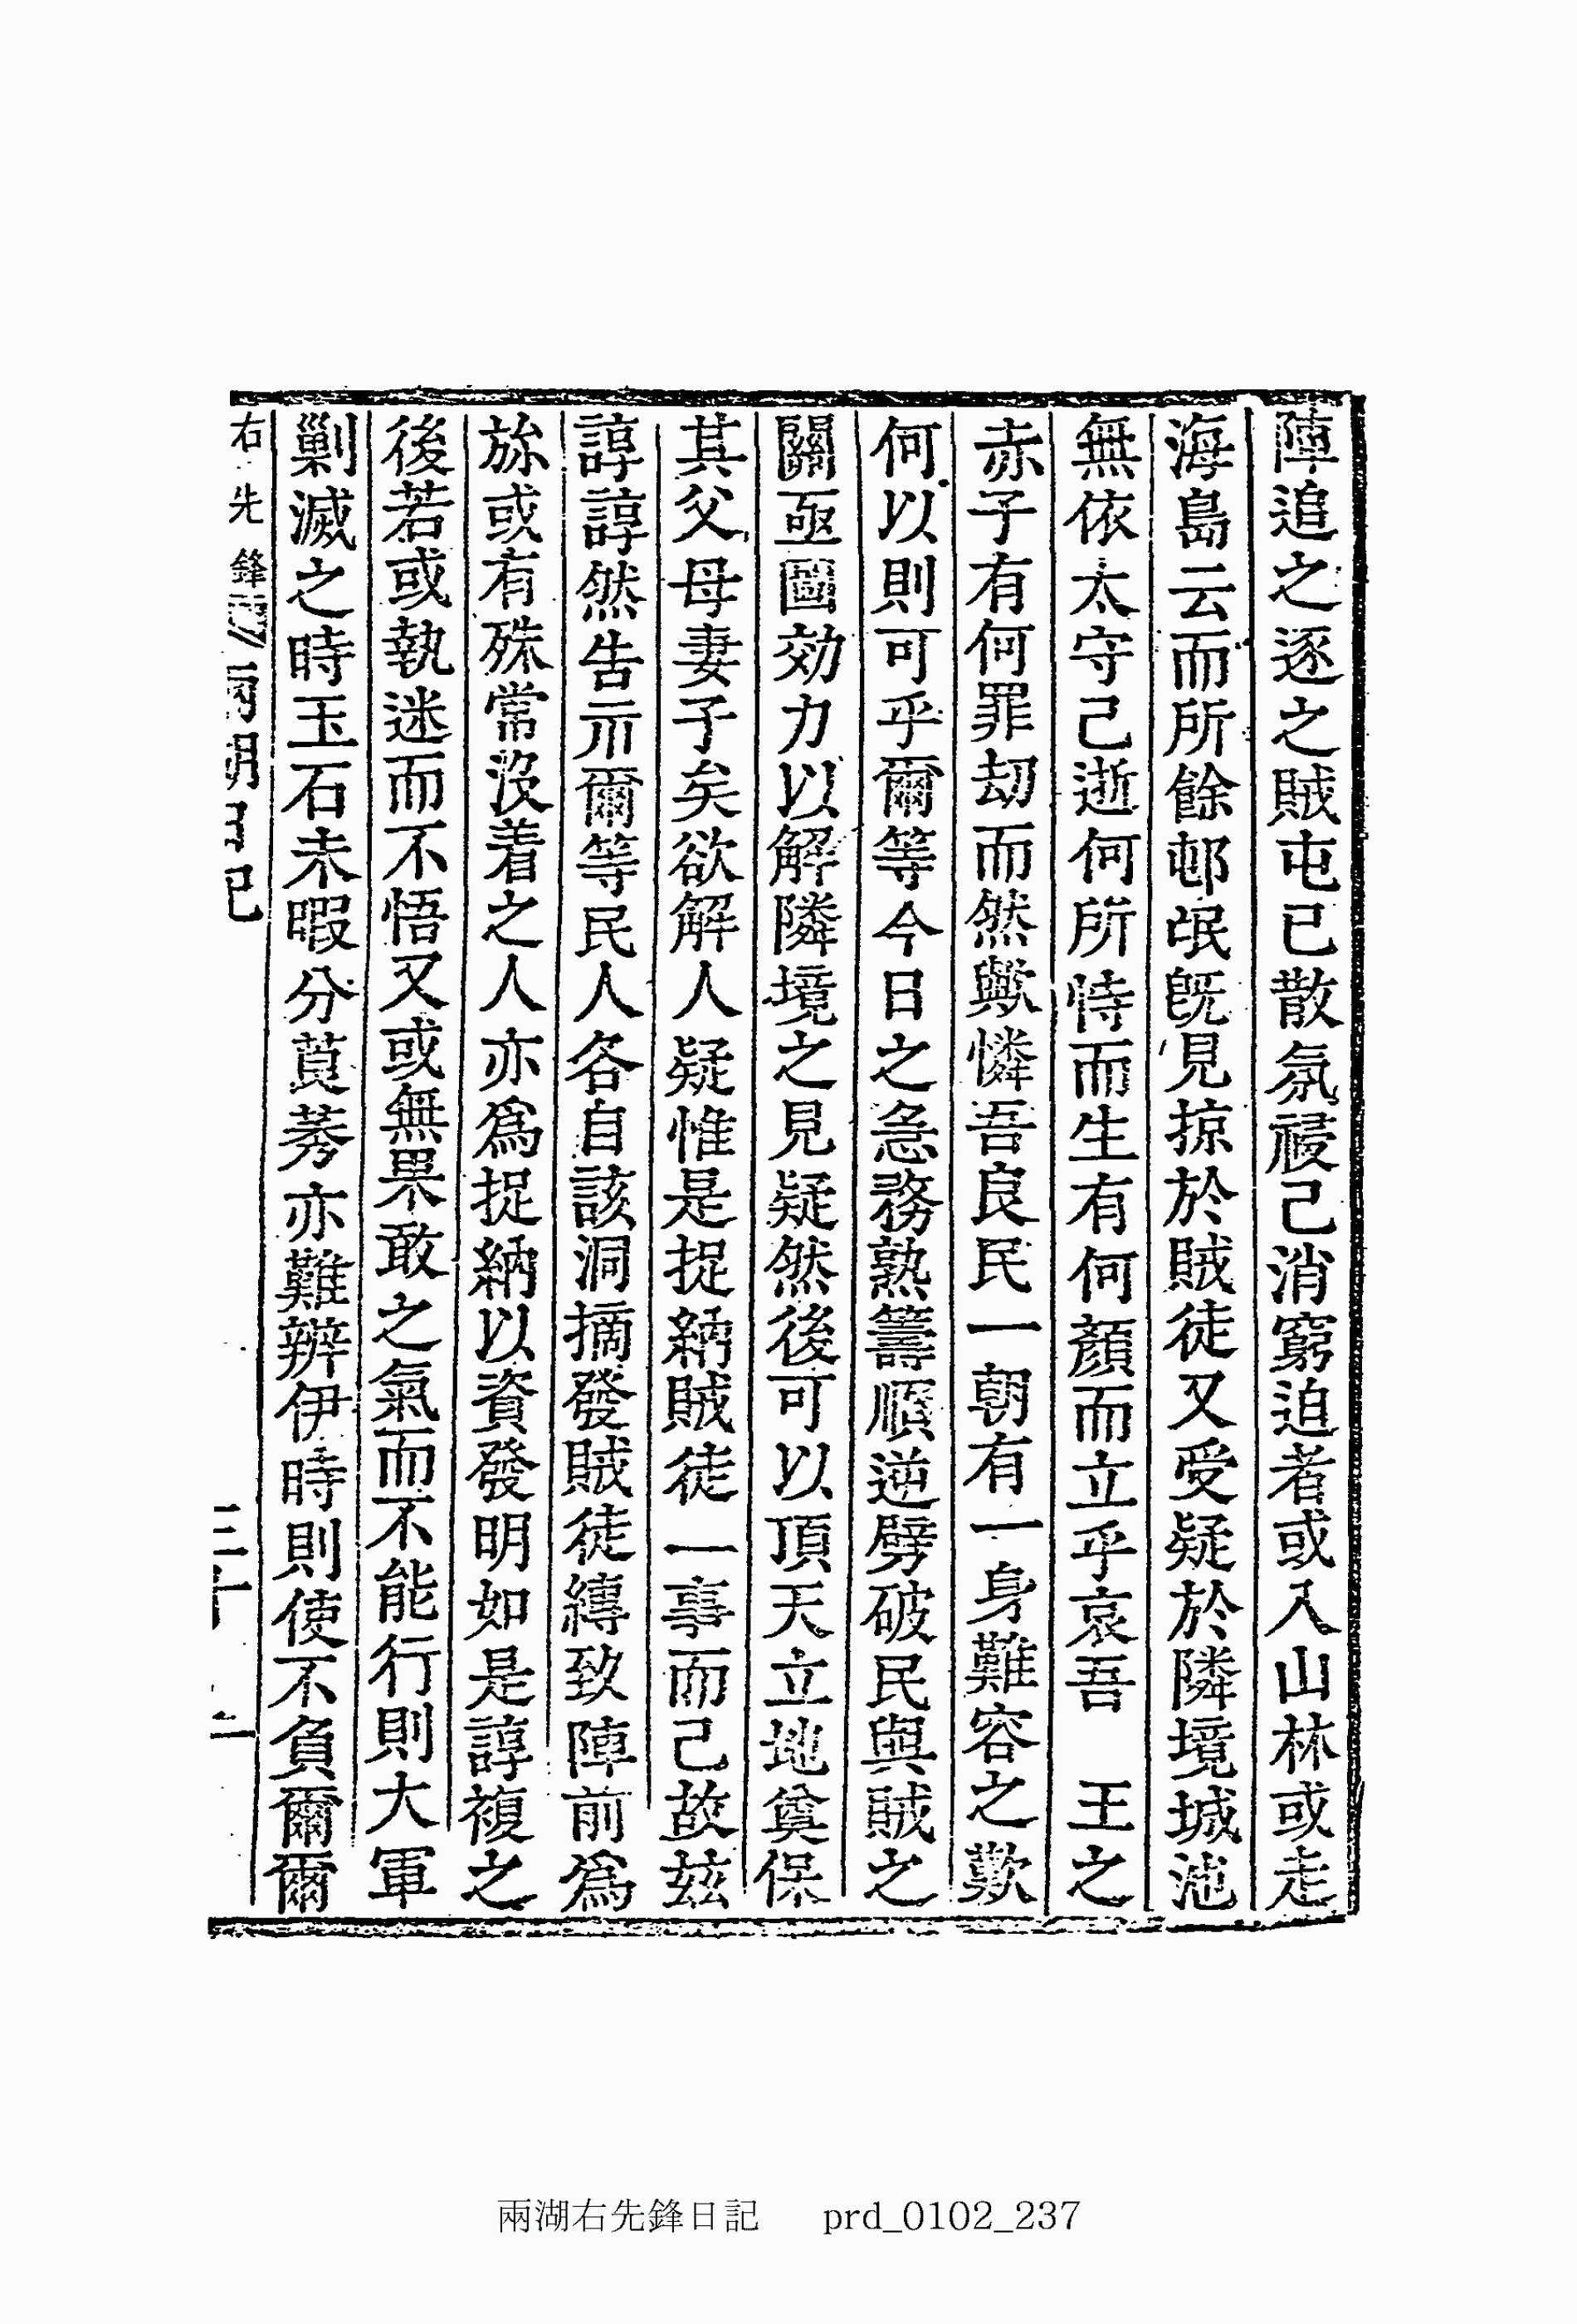 陣追之逐之賊屯已散氛祲已消窮迫者或入山林或走
海島云而所餘邨氓旣見掠於賊徒又受疑於隣境城池
無依太守已逝何所恃而生有何顔而立乎哀吾 王之
赤子有何罪刧而然歟憐吾良民一朝有一身難容之歎
何以則可乎爾等今日之急務熟籌順逆劈破民與賊之
關亟圖効力以解隣境之見疑然後可以頂天立地奠保
其父母妻子矣欲解人人疑惟是捉納賊徒一事而已故玆
諄諄然告示爾等民人各自該洞摘發賊徒縛致陣前爲
旀或有殊常沒着之人亦爲捉納以資發明如是諄複之
後若或執迷而不悟又或無果敢之氣而不能行則大軍
剿滅之時玉石未暇分莨莠亦難辨伊時則使不負爾爾
右先鋒 兩湖日記 三十二
兩湖右先鋒日記 prd_0102_237